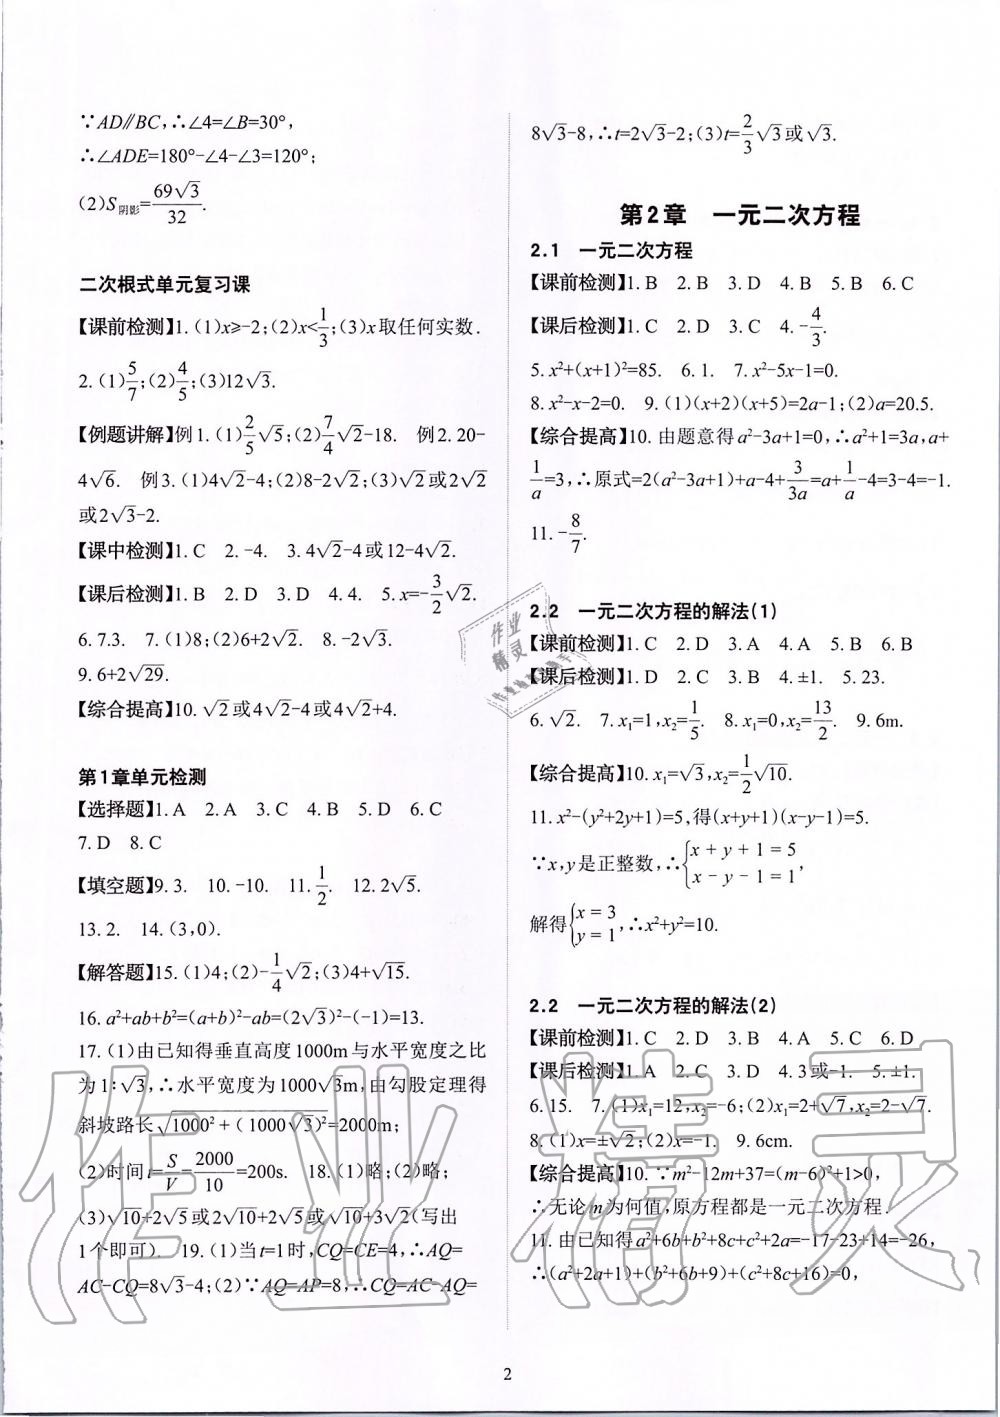 ∵AD∥BC,∴∠4=∠B=30°,
∴∠ADE=180°-∠4-∠3=120°;
(2)S阴影=69√3/32.
二次根式单元复习课
【课前检测】1.(1)x≥-2;(2)x<1/3;(3)x取任何实数.
2.(1)5/7;(2)4/5;(3)12√3.
【例题讲解】例1.(1)2/5√5;(2)7/4√2-18. 例2.20-
4√6. 例3.(1)4√2-4;(2)8-2√2;(3)√2或2√2
或2√3-2.
【课中检测】1.C 2.-4. 3.4√2-4或12-4√2.
【课后检测】1.B 2.D 3.D 4.4. 5.x=-3/2√2.
6.7.3. 7.(1)8;(2)6+2√2. 8.-2√3.
9.6+2√29.
【综合提高】10.√2或4√2-4或4√2+4.
第1章单元检测
【选择题】1.A 2.A 3.C 4.B 5.D 6.C
7.D 8.C
【填空题】9.3. 10.-10. 11.1/2. 12.2√5.
13.2. 14.(3,0).
【解答题】15.(1)4;(2)-1/4√2;(3)4+√15.
16.a²+ab+b²=(a+b)²-ab=(2√3)²-(-1)=13.
17.(1)由已知得垂直高度1000m与水平宽度之比
为1∶√3,∴水平宽度为1000√3m,由勾股定理得
斜坡路长√(1000²+(1000√3)²)=2000m;
(2)时间t=S/V=2000/10=200s. 18.(1)略;(2)略;
(3)√10+2√5或2√10+2√5或√10+3√2(写出
1个即可). 19.(1)当t=1时,CQ=CE=4,∴AQ=
AC-CQ=8√3-4;(2)∵AQ=AP=8,∴CQ=AC-AQ=
8√3-8,∴t=2√3-2;(3)t=2/3√3或√3.
第2章 一元二次方程
2.1 一元二次方程
【课前检测】1.B 2.B 3.D 4.B 5.B 6.C
【课后检测】1.C 2.D 3.C 4.-4/3.
5.x²+(x+1)²=85. 6.1. 7.x²-5x-1=0.
8.x²-x-2=0. 9.(1)(x+2)(x+5)=2a-1;(2)a=20.5.
【综合提高】10.由题意得a²-3a+1=0,∴a²+1=3a,a+
1/a=3,∴原式=2(a²-3a+1)+a-4+3/3a=a+1/a-4=3-4=-1.
11.-8/7.
2.2 一元二次方程的解法(1)
【课前检测】1.C 2.D 3.A 4.A 5.B 6.B
【课后检测】1.D 2.C 3.B 4.±1. 5.23.
6.√2. 7.x₁=1,x₂=1/5. 8.x₁=0,x₂=13/2. 9.6m.
【综合提高】10.x₁=√3,x₂=1/2√10.
11.x²-(y²+2y+1)=5,得(x+y+1)(x-y-1)=5.
∵x,y是正整数,∴{x+y+1=5
x-y-1=1,
解得{x=3
y=1,∴x²+y²=10.
2.2 一元二次方程的解法(2)
【课前检测】1.C 2.D 3.B 4.A 5.C 6.D
【课后检测】1.A 2.C 3.D 4.3或-1. 5.±1.
6.15. 7.(1)x₁=12,x₂=-6;(2)x₁=2+√7,x₂=2-√7.
8.(1)x=±√2;(2)x=-1. 9.6cm.
【综合提高】10.∵m²-12m+37=(m-6)²+1>0,
∴无论m为何值,原方程都是一元二次方程.
11.由已知得a²+6b+b²+8c+c²+2a=-17-23+14=-26,
∴(a²+2a+1)+(b²+6b+9)+(c²+8c+16)=0,
2
作业精灵
作业
精灵